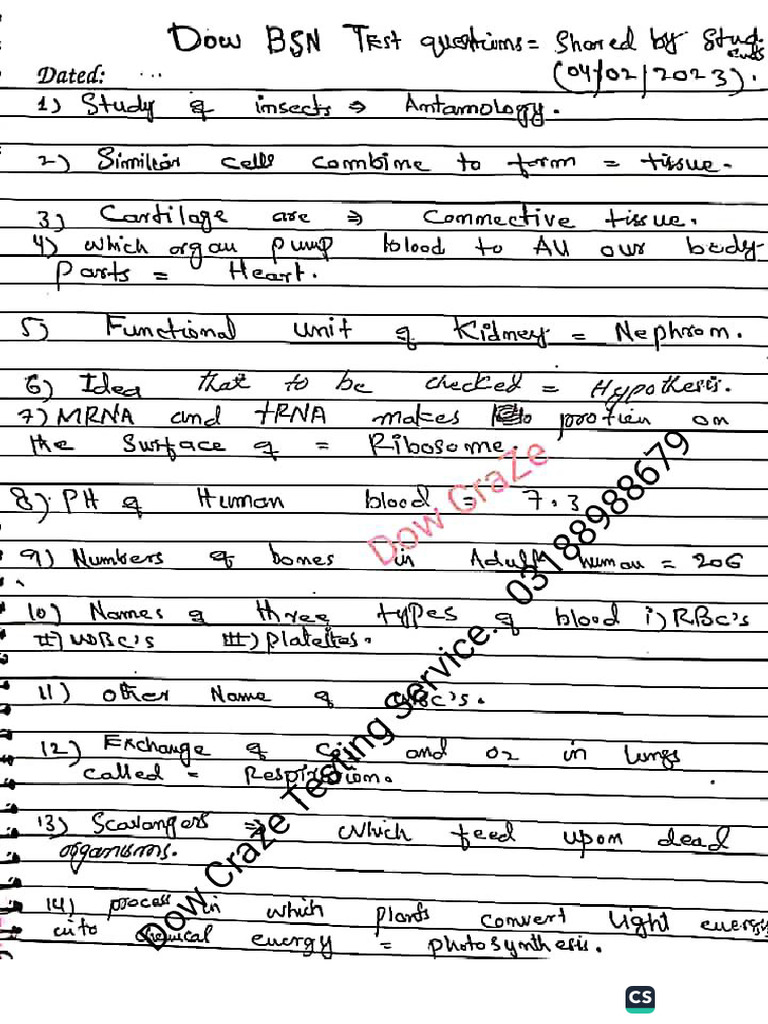 Dow BSN Test questions = Shared by Students
Dated: ... (04/02/2023).
1) Study of insects ⇒ Antamology.
2) Similar cells combine to form = tissue.
3) Cartilage are ⇒ Connective tissue.
4) which organ pump blood to All our body
parts = Heart.
5) Functional unit of Kidney = Nephron.
6) Idea that to be checked = Hypothesis.
7) MRNA and tRNA makes protien on
the Surface of = Ribosome.
8) PH of Human blood = 7.3
9) Numbers of bones in Adult human = 206
10) Names of three types of blood i) RBC's
II) WBC's III) platelets.
11) other Name of
12) Exchange of and O2 in lungs
called = Respiration.
13) Scavangers ⇒ which feed upon dead
organisms.
14) process in which plants convert light energy
into chemical energy = photosynthesis.
Dow CraZe
Dow Craze Testing Service. 03188988679
CS